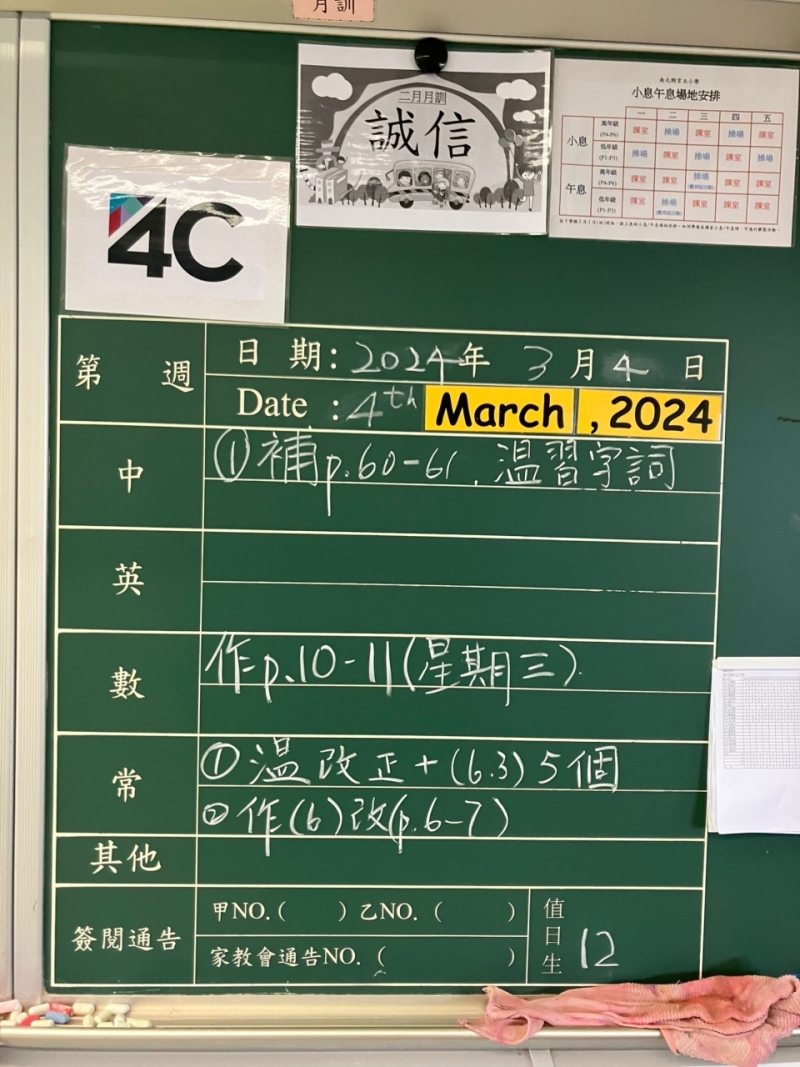 月訓
二月月訓
誠信
小息午息場地安排
一 二 三 四 五
小息 高年級 (P4-P6) 課室 操場 課室 操場 課室
低年級 (P1-P3) 操場 課室 操場 課室 操場
午息 高年級 (P4-P6) 課室 課室 操場 課室 課室
低年級 (P1-P3) 課室 操場 課室 課室 課室
4C
第 週
日 期: 2024年 3 月 4 日
Date : 4th March , 2024
中
①補p.60-61, 温習字詞
英
數
作p.10-11(星期三)
常
①温改正+(6.3)5個
②作(6)改(p.6-7)
其他
簽閱通告
甲NO.( ) 乙NO. ( )
家教會通告NO. ( )
值日生 12